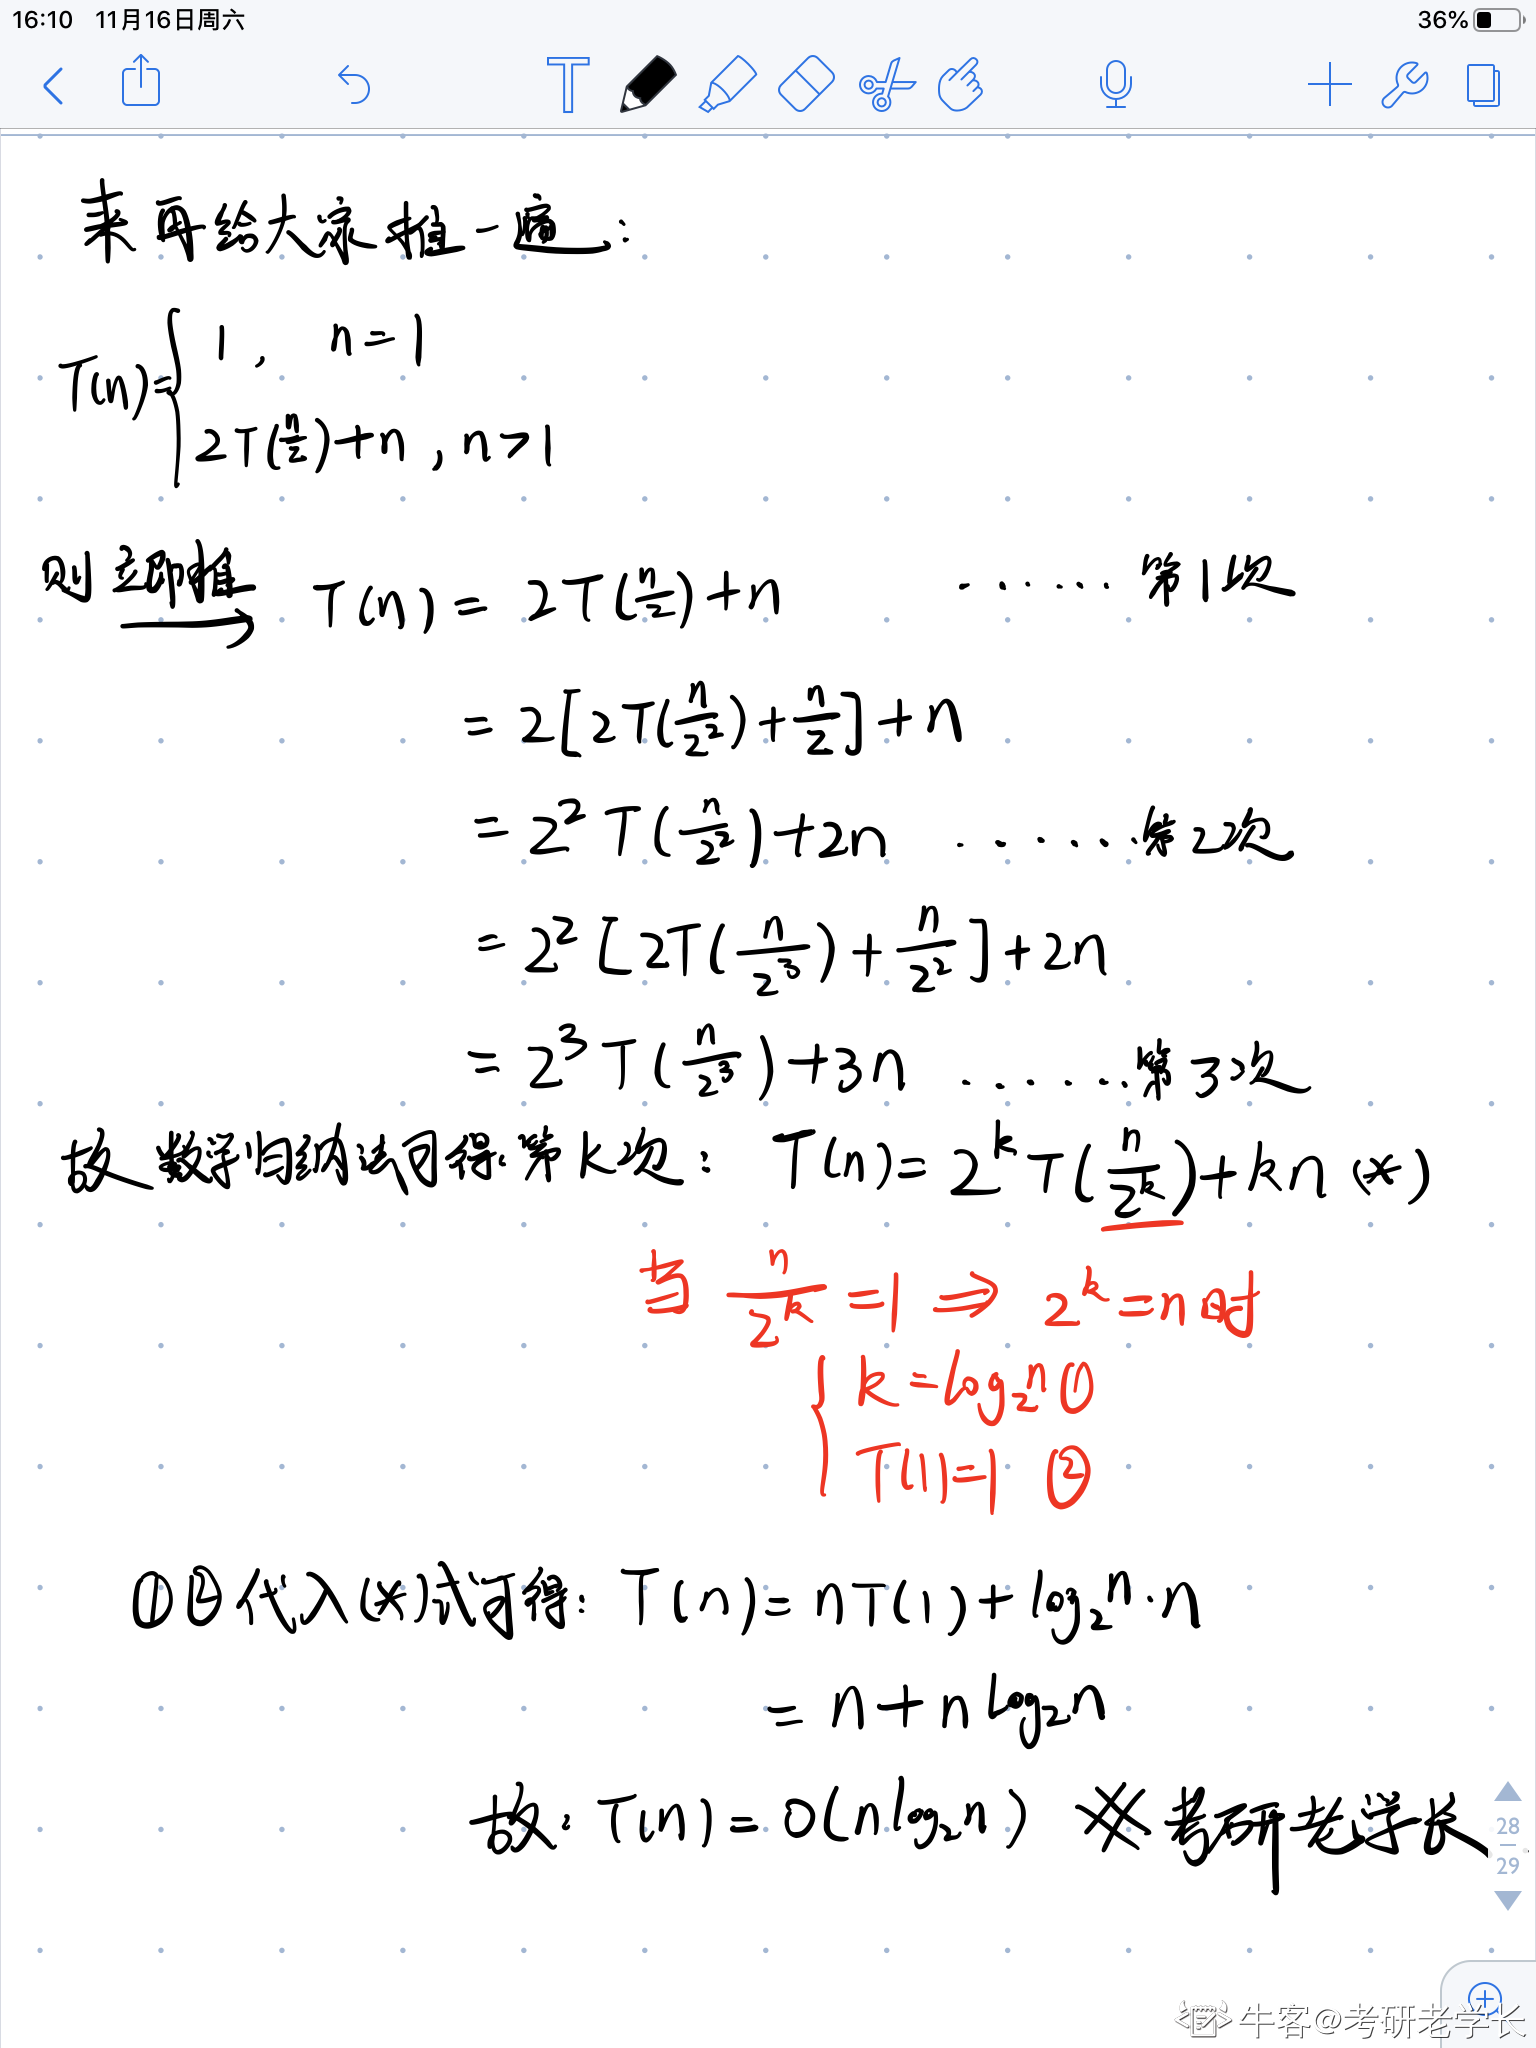 16:10 11月16日周六 36%
来再给大家推一遍：
T(n)={ 1, n=1
2T(n/2)+n, n>1
则立即推 → T(n) = 2T(n/2)+n ......第1次
= 2[2T(n/2²)+n/2]+n
= 2² T(n/2²)+2n ......第2次
= 2² [2T(n/2³)+n/2²]+2n
= 2³ T(n/2³)+3n ......第3次
故数学归纳法可得:第k次： T(n)=2^k T(n/2^k)+kn (*)
当 n/2^k =1 ⇒ 2^k=n时
{ k=log₂n ①
T(1)=1 ②
①②代入(*)式可得： T(n)=nT(1)+log₂n·n
= n+n log₂n
故：T(n)=O(nlog₂n) ※考研老学长
28
29
牛客@考研老学长